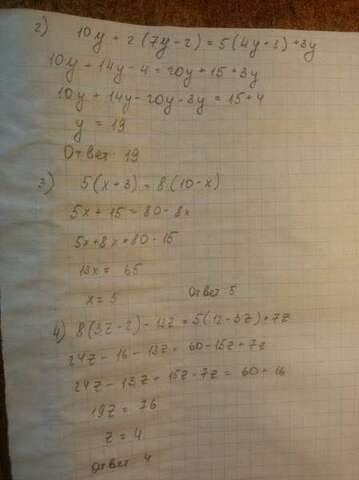 2) 10y + 2(7y-2) = 5(4y+3)+3y
10y + 14y - 4 = 20y + 15 + 3y
10y + 14y - 20y - 3y = 15 + 4
y = 19
Ответ: 19
3) 5(x+3) = 8(10-x)
5x + 15 = 80 - 8x
5x + 8x = 80 - 15
13x = 65
x = 5 Ответ: 5
4) 8(3z-2) - 13z = 5(12-3z)+7z
24z - 16 - 13z = 60 - 15z + 7z
24z - 13z + 15z - 7z = 60 + 16
19z = 76
z = 4
Ответ: 4